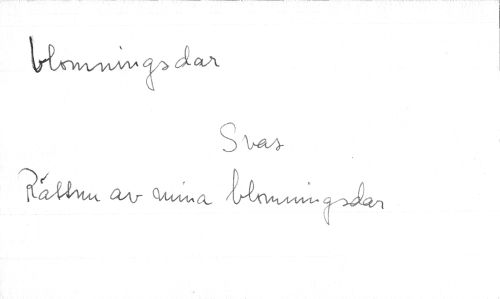 blomningsdar
Svas
av mina blomningsdar